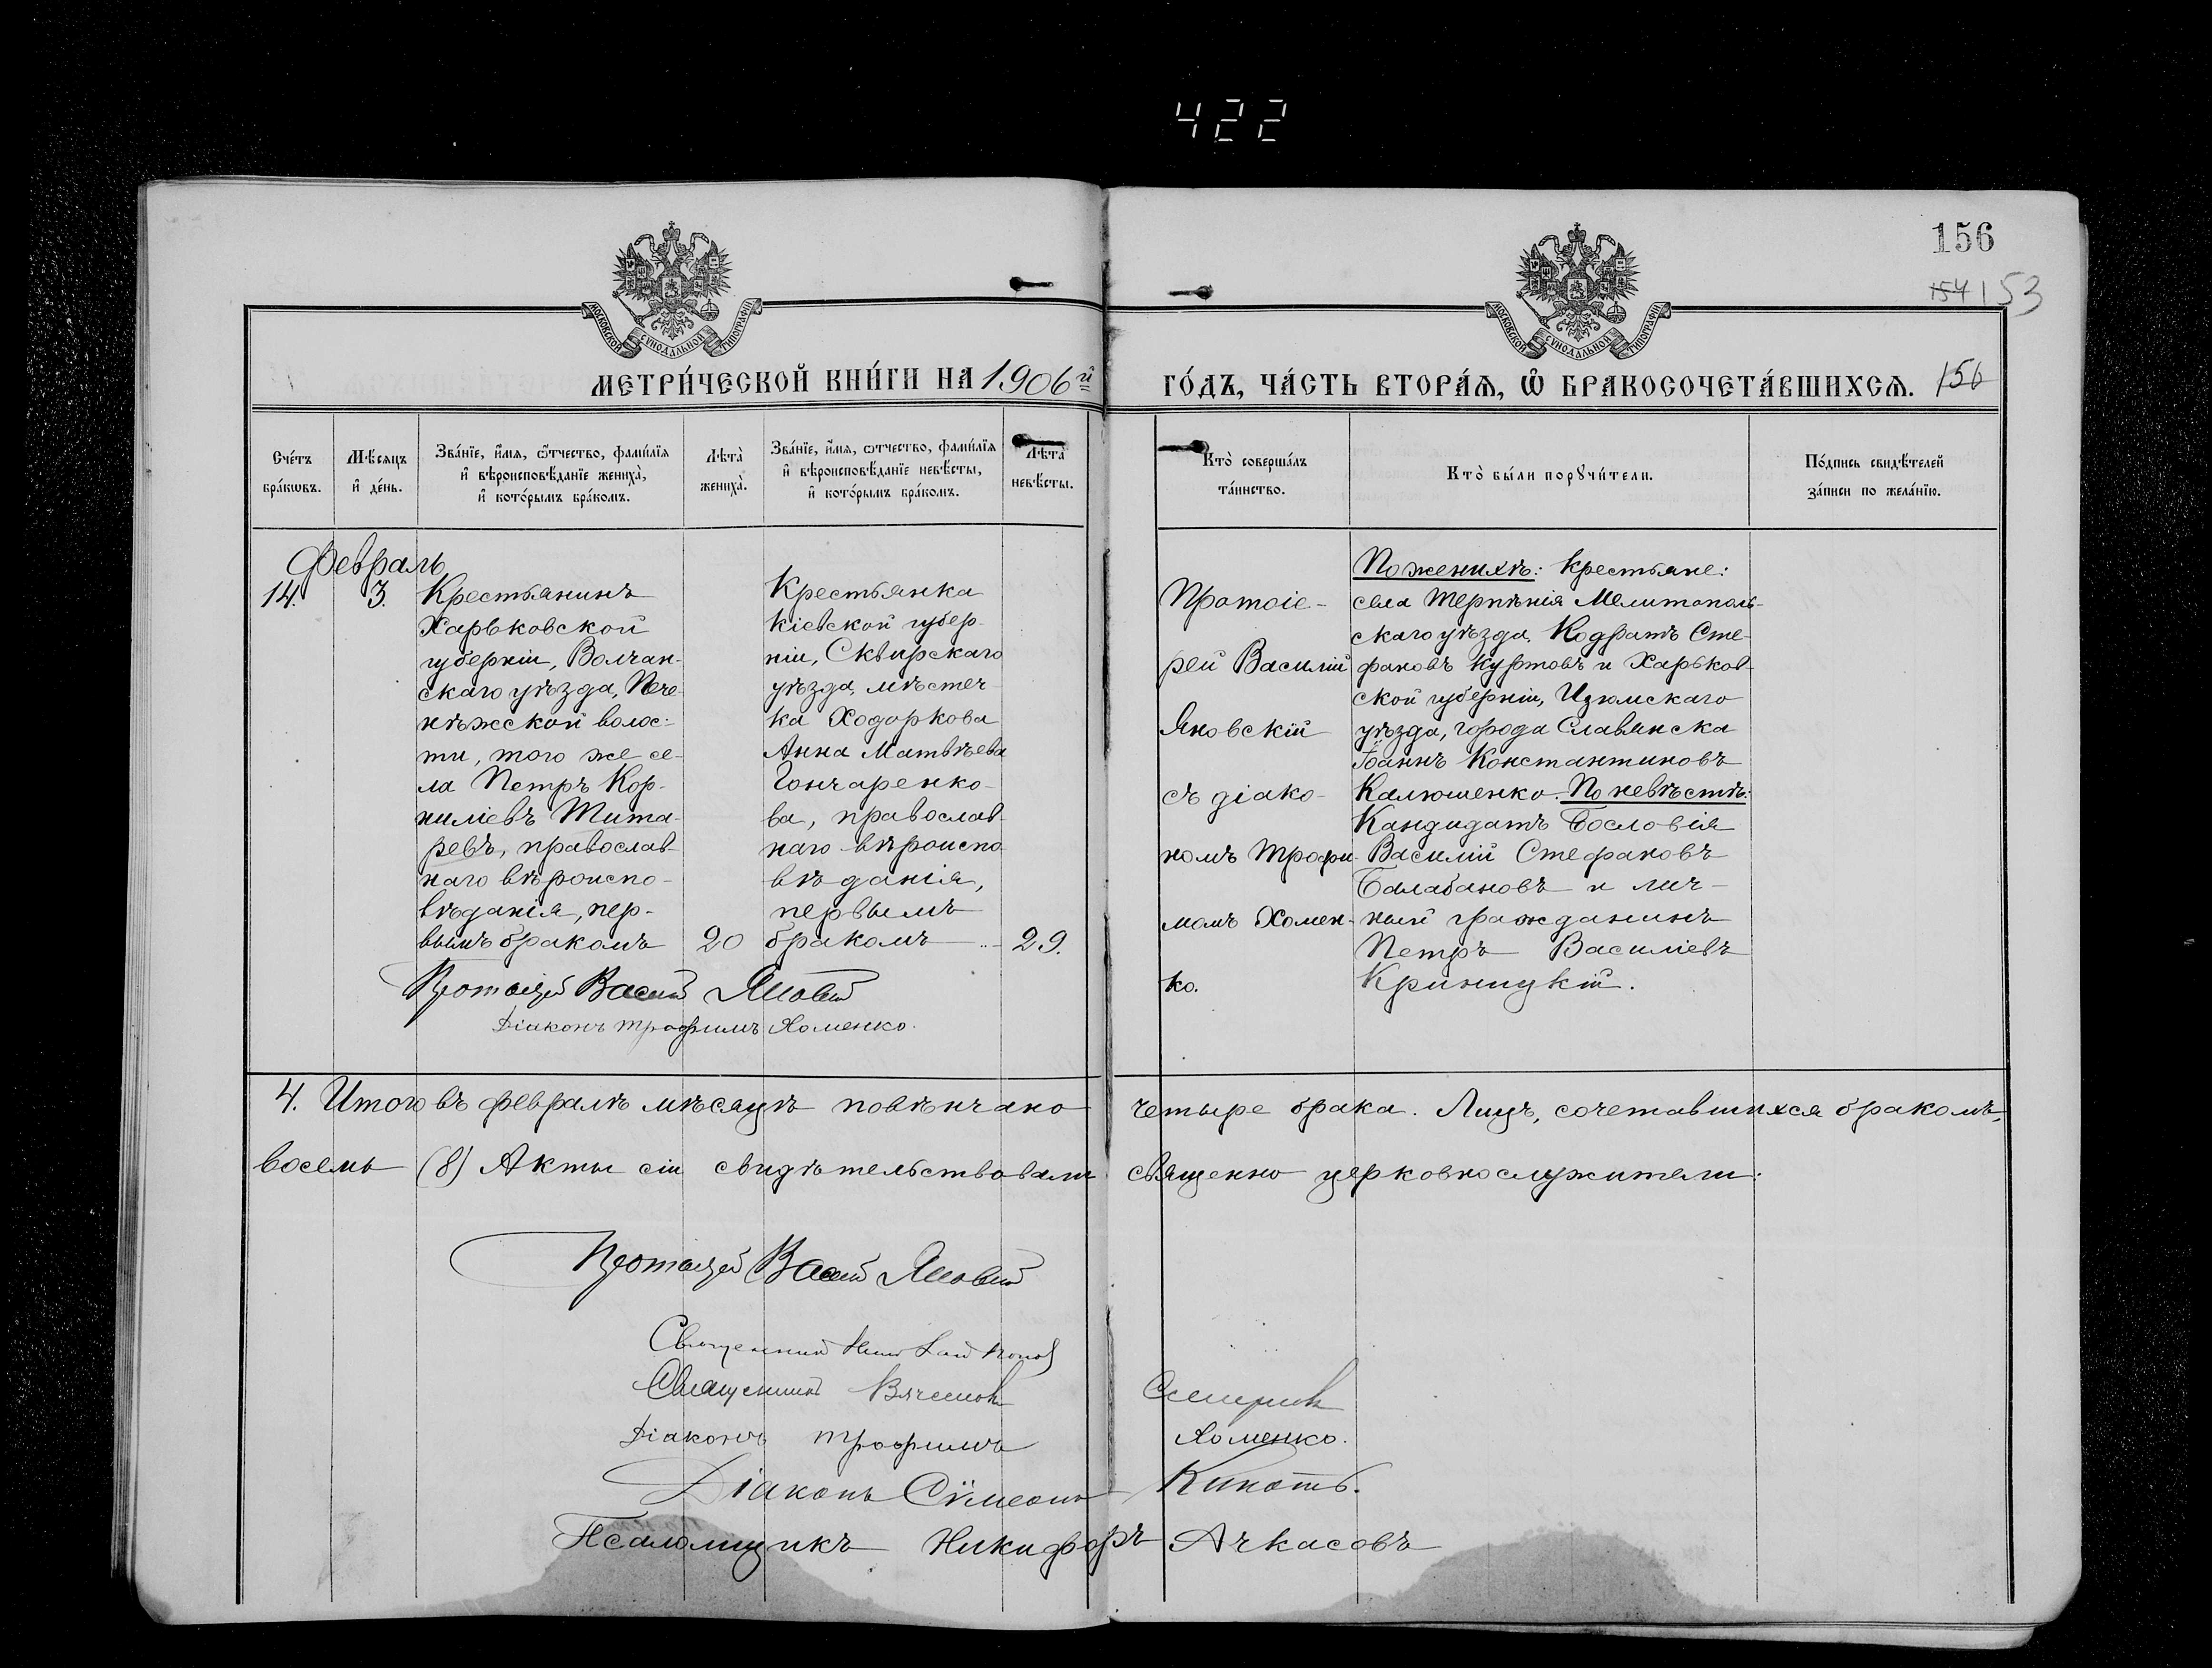 422
156
154 153
МОСКОВСКОЙ СѴНОДАЛЬНОЙ ТИПОГРАФІИ
МОСКОВСКОЙ СѴНОДАЛЬНОЙ ТИПОГРАФІИ
МЕТРИ́ЧЕСКОЙ КНИ́ГИ НА 1906й
ГО́ДЪ, ЧА́СТЬ ВТОРА́Ѧ, Ѡ҆ БРАКОСОЧЕТА́ВШИХСѦ. 156
Сче́тъ
бра́кѡвъ.
Мѣ́сѧцъ
и҆ де́нь.
Зва́нїе, и҆́мѧ, ѻ҆́тчество, фами́лїѧ
и҆ вѣроисповѣ́данїе жениха̀,
и҆ кото́рымъ бра́комъ.
Лѣта̀
жениха̀.
Зва́нїе, и҆́мѧ, ѻ҆́тчество, фами́лїѧ
и҆ вѣроисповѣ́данїе невѣ́сты,
и҆ кото́рымъ бра́комъ.
Лѣта̀
невѣ́сты.
Кто̀ соверша́лъ
та́инство.
Кто̀ бы́ли порꙋчи́тели.
По́дпись свидѣ́телей
за́писи по жела́нїю.
Февраль
14.
3.
Крестьянинъ
Харьковской
губерніи, Волчан-
скаго уѣзда, Пече-
нѣжской волос-
ти, того же се-
ла Петръ Кор-
ниліевъ Тита-
ревъ, православ-
наго вѣроиспо-
вѣданія, пер-
вымъ бракомъ
20
Крестьянка
Кіевской губер-
ніи, Сквирскаго
уѣзда, мѣстеч-
ка Ходоркова
Анна Матвѣева
Гончаренко-
ва, православ-
наго вѣроиспо-
вѣданія,
первымъ
бракомъ
29.
Протоіе-
рей Василій
Яновскій
съ діако-
номъ Трофи-
момъ Хомен-
ко.
По женихѣ: Крестьяне:
села Терпѣнія Мелитополь-
скаго уѣзда, Кодратъ Сте-
фановъ Куртовъ и Харьков-
ской губерніи, Изюмскаго
уѣзда, города Славянска
Іоаннъ Константиновъ
Калюшенко. По невѣстѣ:
Кандидатъ Богословія
Василій Стефановъ
Балабановъ и лич-
ный гражданинъ
Петръ Василіевъ
Криницкій.
Протоіерей Василій Яновскій
Діаконъ Трофимъ Хоменко.
4. Итого въ февралѣ мѣсяцѣ повѣнчано четыре брака. Лицъ, сочетавшихся бракомъ,
восемь (8) Акты сіи свидѣтельствовали священно церковнослужители:
Протоіерей Василій Яновскій
Священникъ
Священникъ
Діаконъ Трофимъ Хоменко.
Діаконъ Сѵмеонъ
Псаломщикъ Никифоръ Ачкасовъ